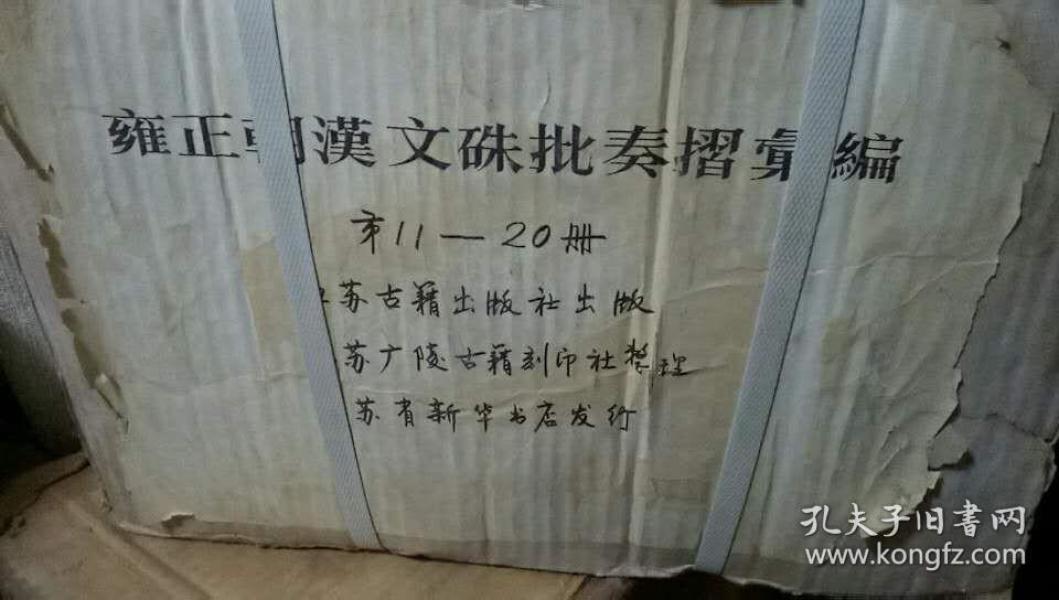 雍正朝漢文硃批奏摺彙編
第11—20册
江苏古籍出版社出版
苏广陵古籍刻印社整理
苏省新华书店发行
孔夫子旧書网
www.kongfz.com